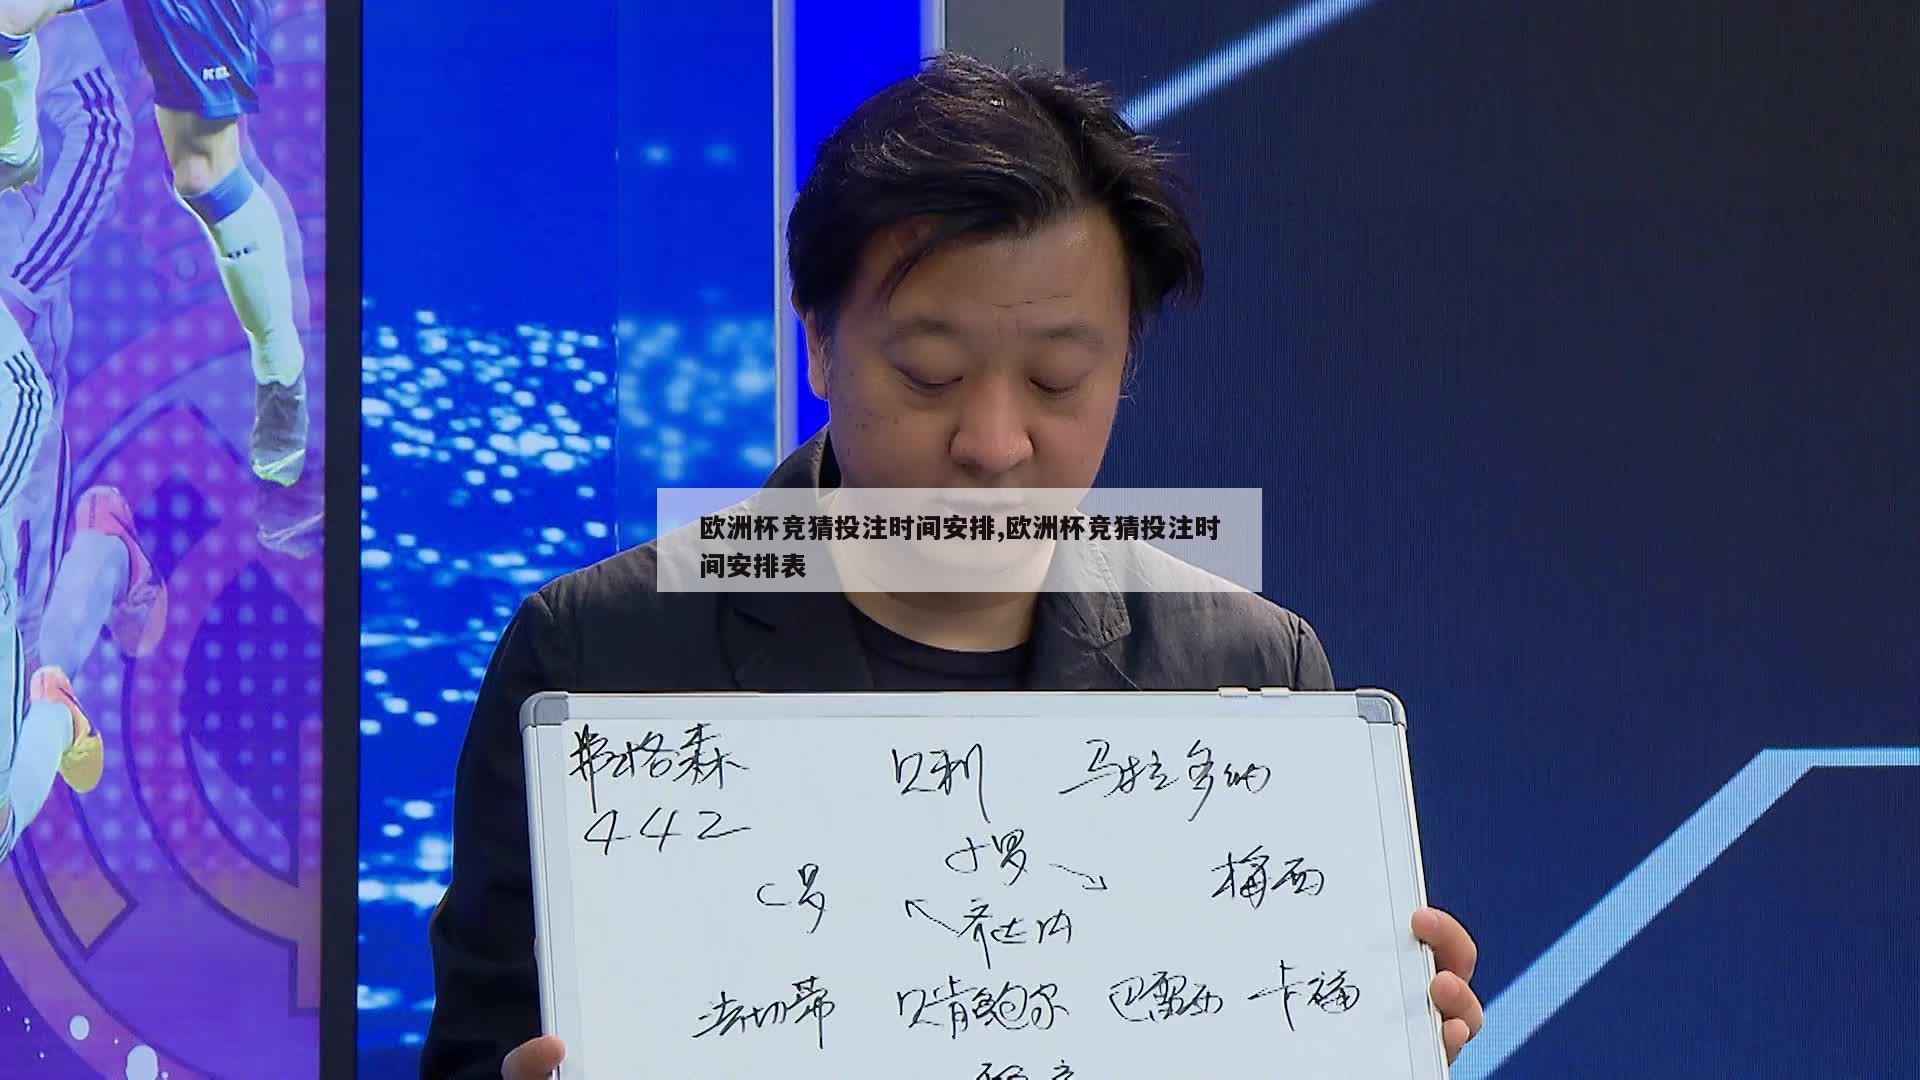 欧洲杯竞猜投注时间安排,欧洲杯竞猜投注时
间安排表
弗格森 贝利 马拉多纳
442
小罗
C罗 梅西
齐达内
法切蒂 贝肯鲍尔 巴雷西 卡福